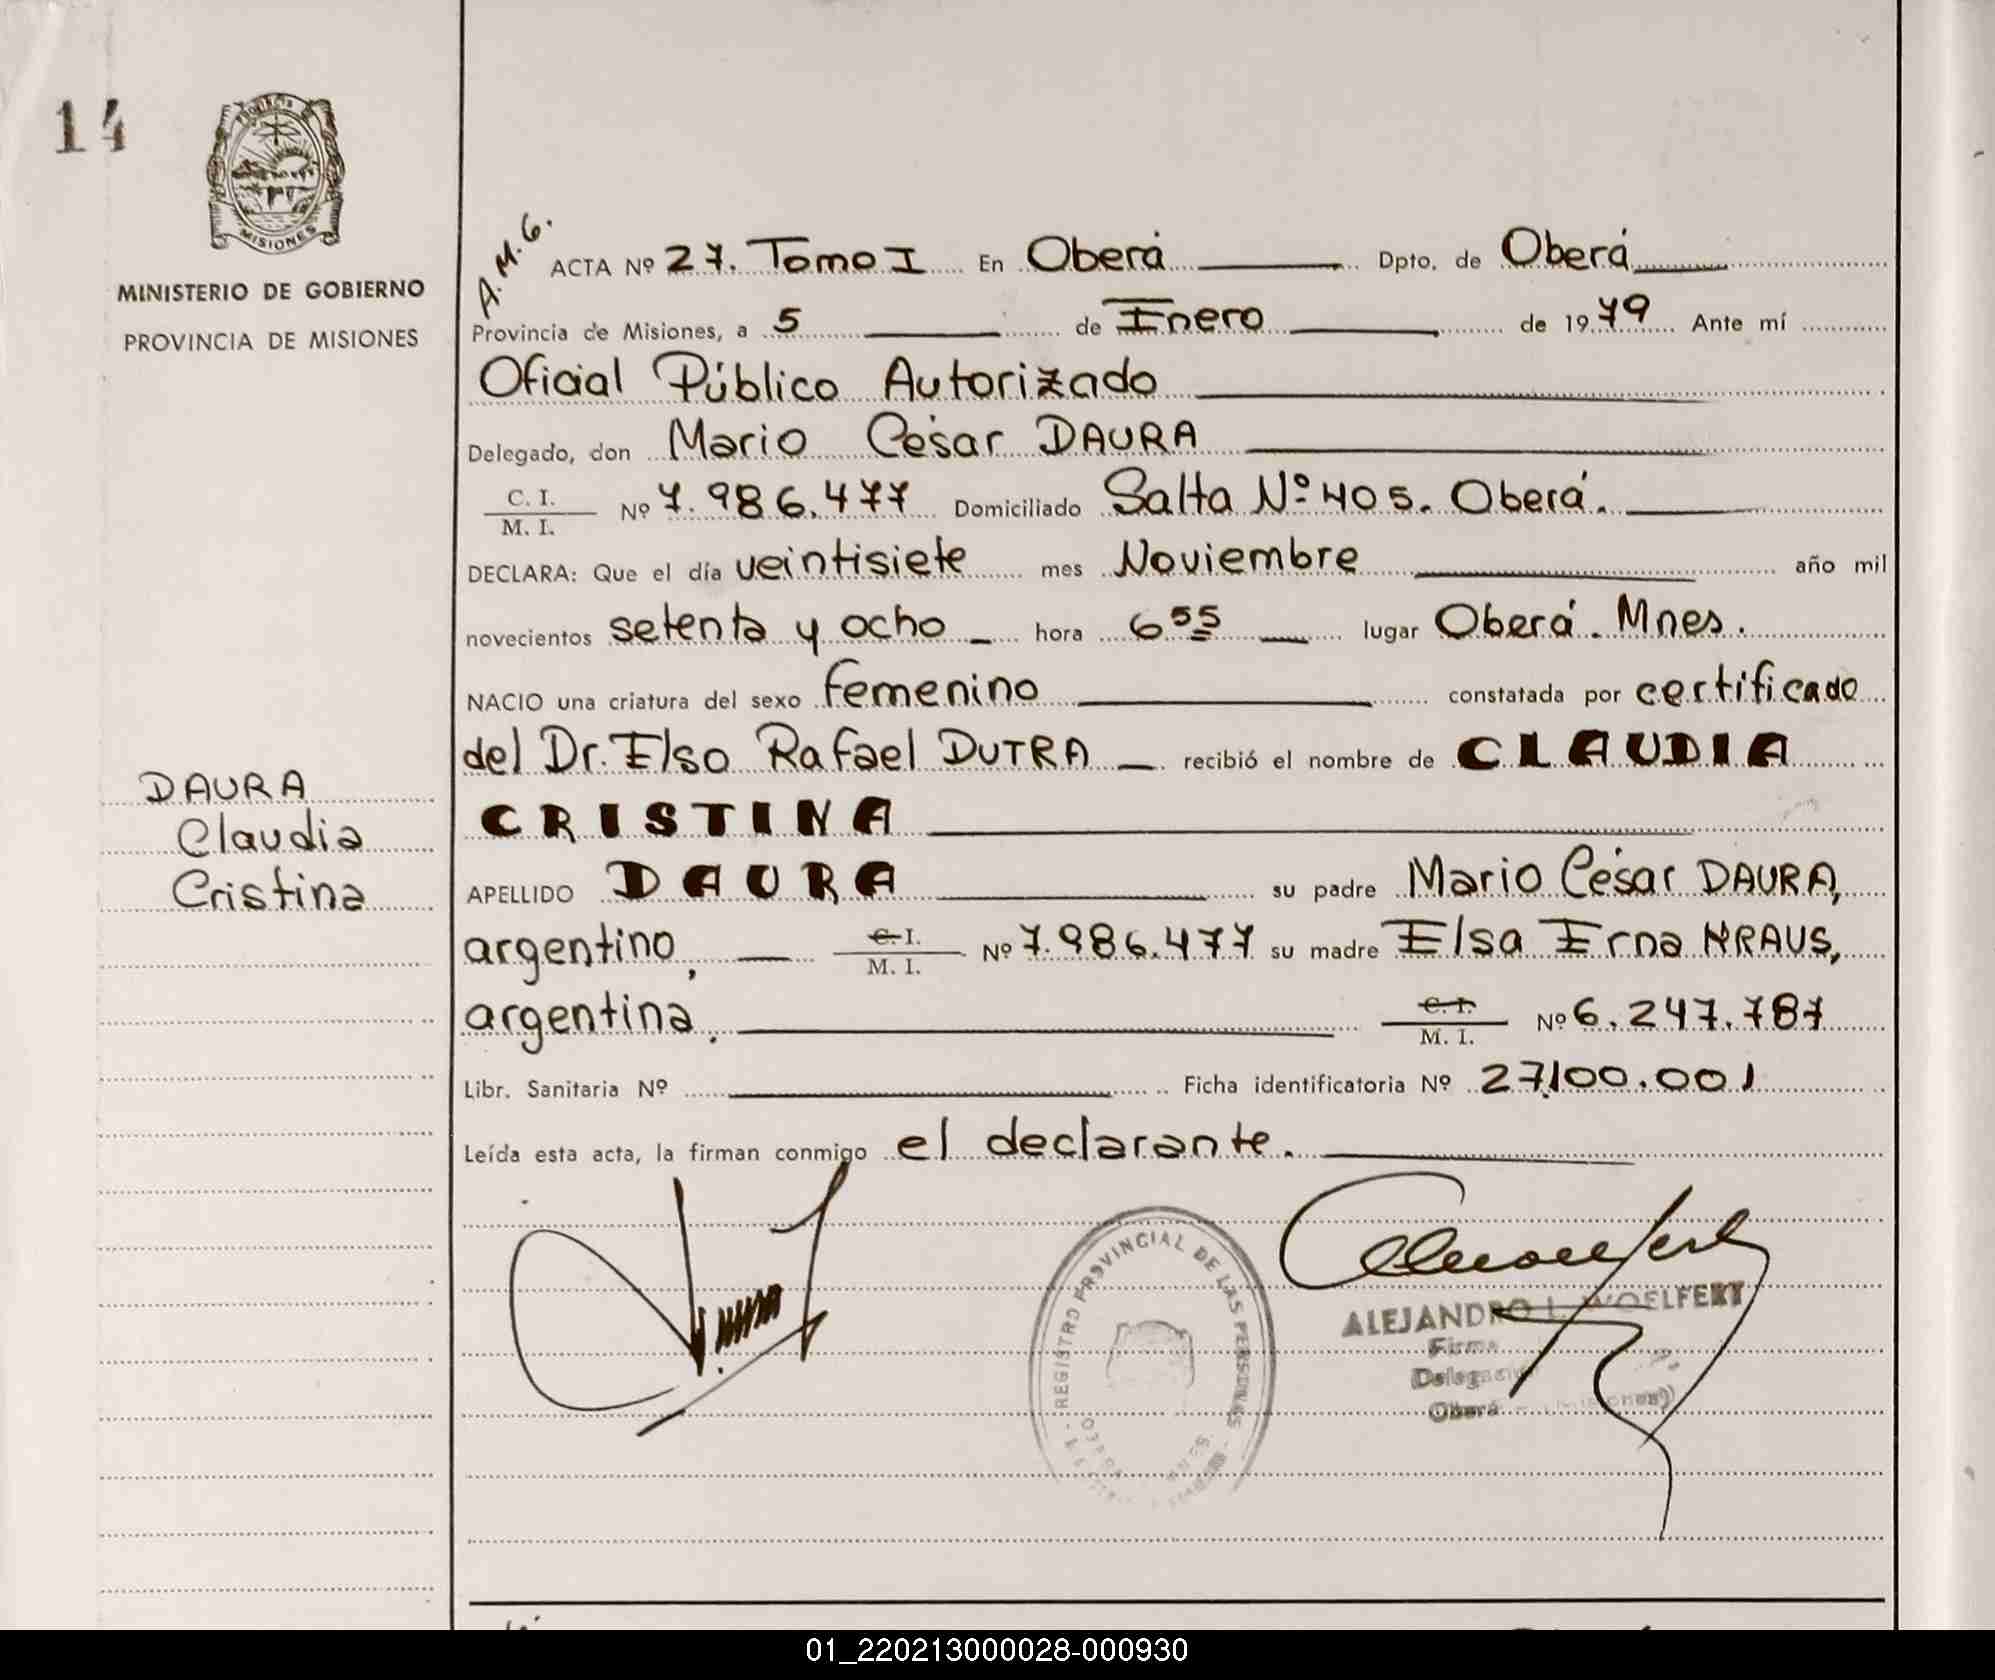 14
MISIONES
MINISTERIO DE GOBIERNO
PROVINCIA DE MISIONES
DAURA
Claudia
Cristina
A.M.G.
ACTA Nº 27. Tomo I En Oberá Dpto. de Oberá
Provincia de Misiones, a 5 de Enero de 1979 Ante mí
Oficial Público Autorizado
Delegado, don Mario César DAURA
C. I.
M. I. Nº 7.986.477 Domiciliado Salta Nº 405. Oberá.
DECLARA: Que el día veintisiete mes Noviembre año mil
novecientos setenta y ocho hora 6 55 lugar Oberá. Mnes.
NACIO una criatura del sexo femenino constatada por certificado
del Dr. Elso Rafael DUTRA recibió el nombre de CLAUDIA
CRISTINA
APELLIDO DAURA su padre Mario César DAURA,
argentino, C. I.
M. I. Nº 7.986.477 su madre Elsa Erna KRAUS,
argentina. C. I.
M. I. Nº 6.247.787
Libr. Sanitaria Nº Ficha identificatoria Nº 27.100.001
Leída esta acta, la firman conmigo el declarante.
REGISTRO PROVINCIAL DE LAS PERSONAS
ALEJANDRO L. WOELFERT
Firma
Oberá
01_220213000028-000930